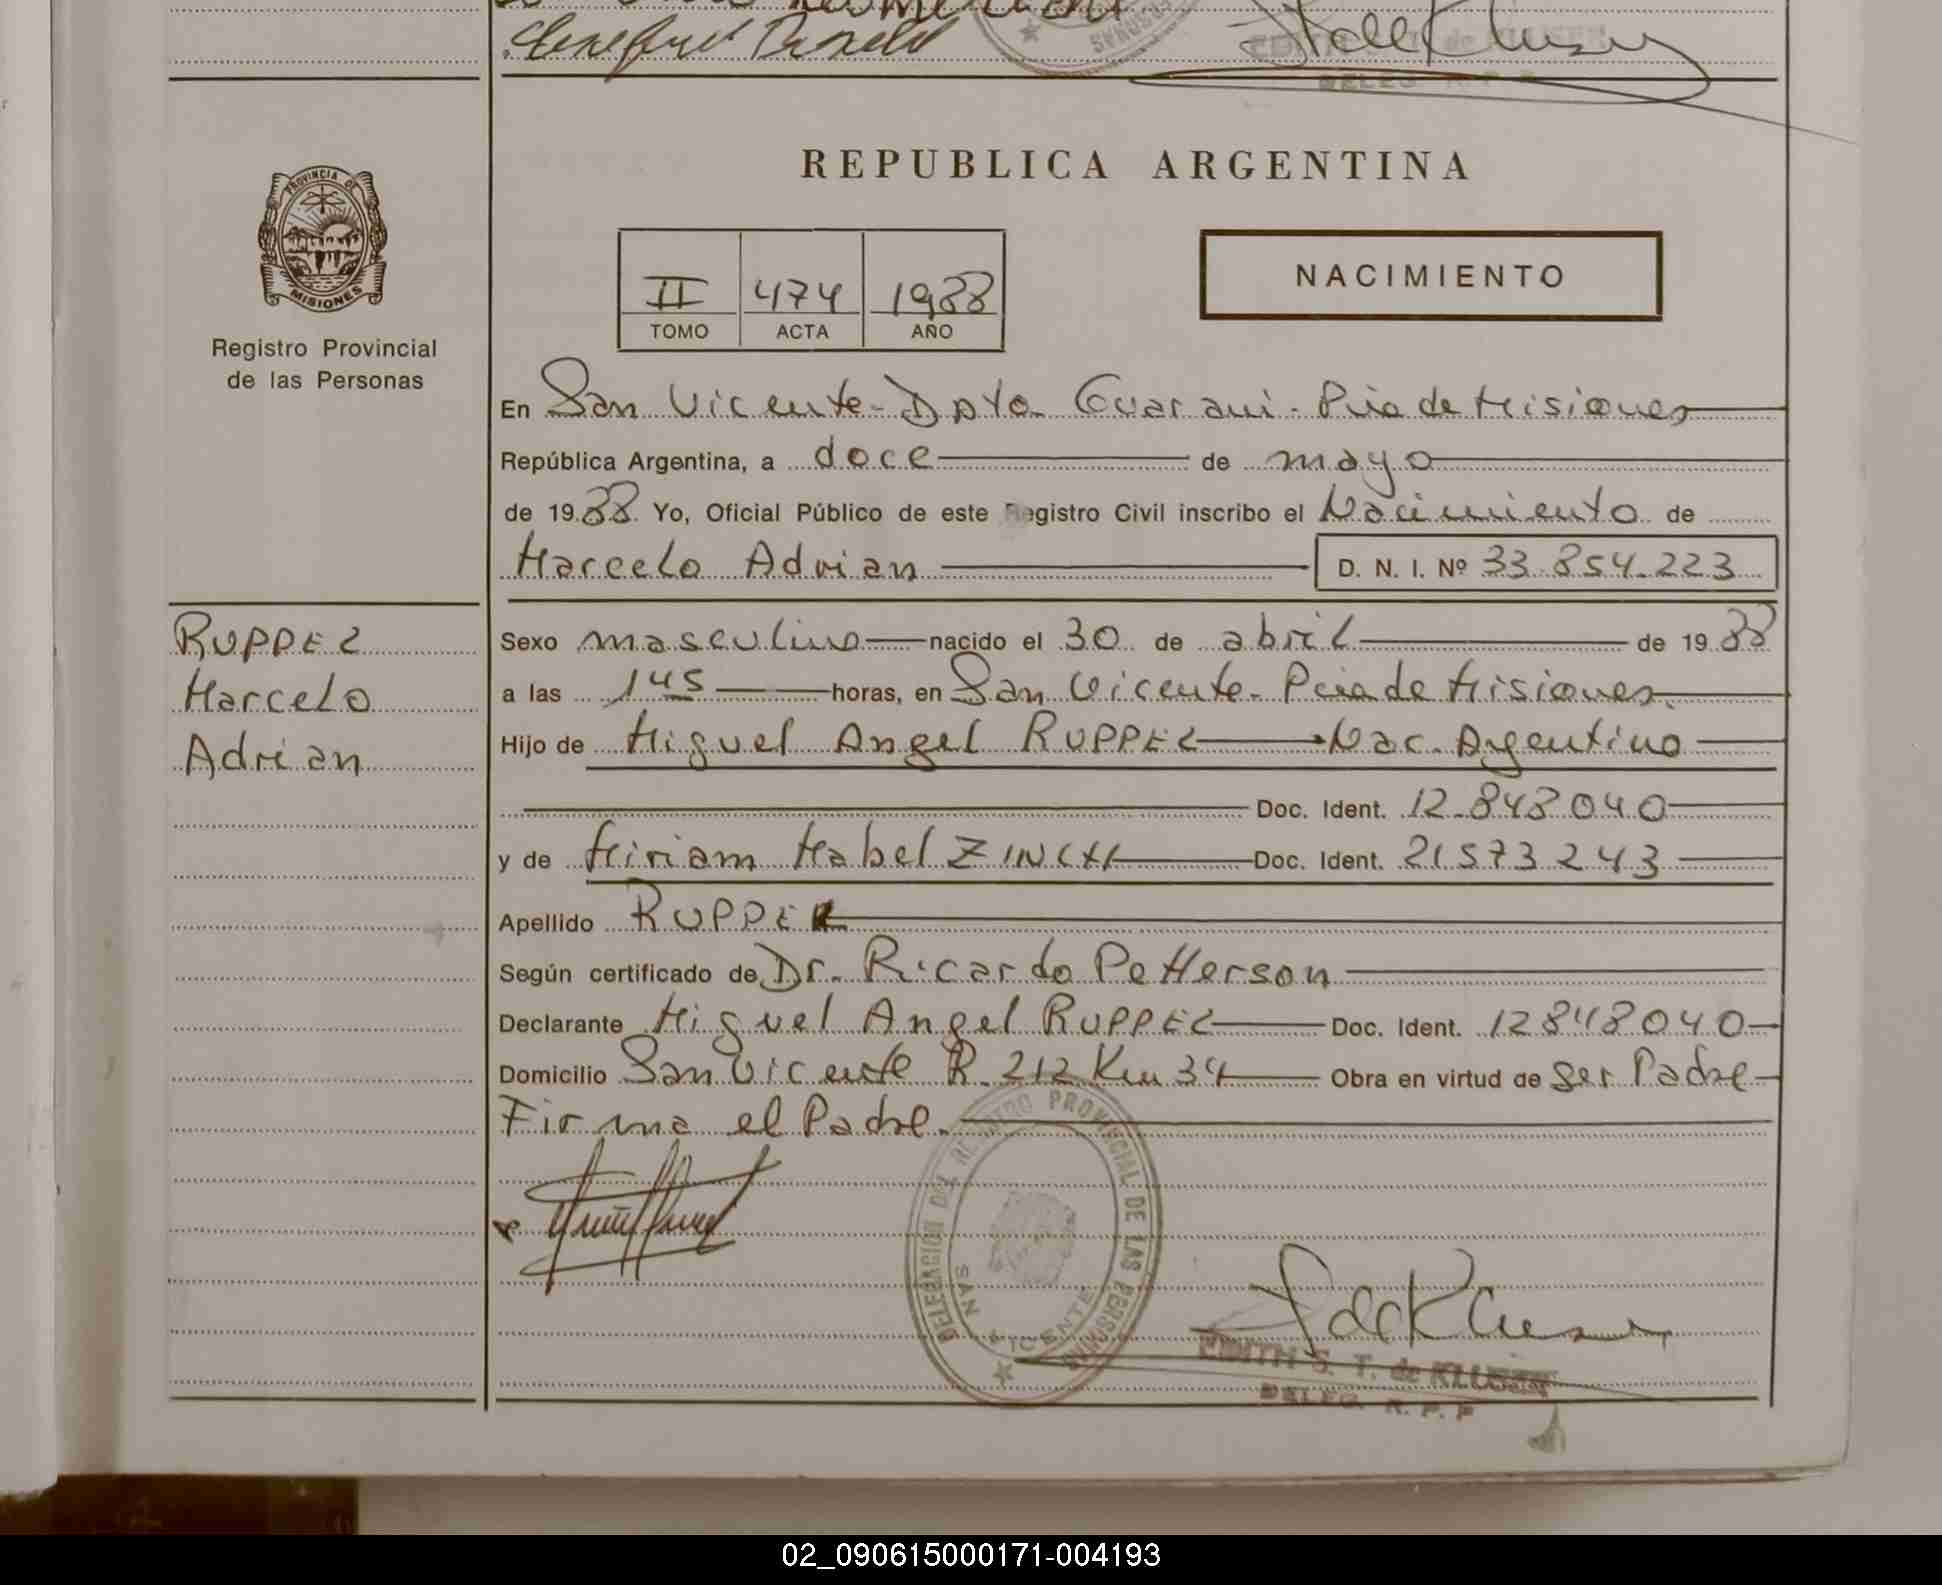 EDITH S. T. de KLUSER
DELEG. R. P. P.
PROVINCIA DE
MISIONES
Registro Provincial
de las Personas
REPUBLICA ARGENTINA
II 474 1988
TOMO ACTA AÑO
NACIMIENTO
En San Vicente - Dpto Guarani - Pcia de Misiones
República Argentina, a doce de mayo
de 1988 Yo, Oficial Público de este Registro Civil inscribo el Nacimiento de
Marcelo Adrian D. N. I. Nº 33.854.223
RUPPEL
Marcelo
Adrian
Sexo masculino nacido el 30 de abril de 1988
a las 145 horas, en San Vicente - Pcia de Misiones.
Hijo de Miguel Angel RUPPEL Nac. Argentino
Doc. Ident. 12.848040
y de Miriam Mabel ZINCKI Doc. Ident. 21573243
Apellido RUPPEL
Según certificado de Dr. Ricardo Petterson
Declarante Miguel Angel RUPPEL Doc. Ident. 12848040
Domicilio San Vicente R. 212 Km 34 Obra en virtud de ser Padre
Firma el Padre.
DELEGACION DEL REGISTRO PROVINCIAL DE LAS PERSONAS
SAN VICENTE
EDITH S. T. de KLUSER
DELEG. R. P. P
02_090615000171-004193